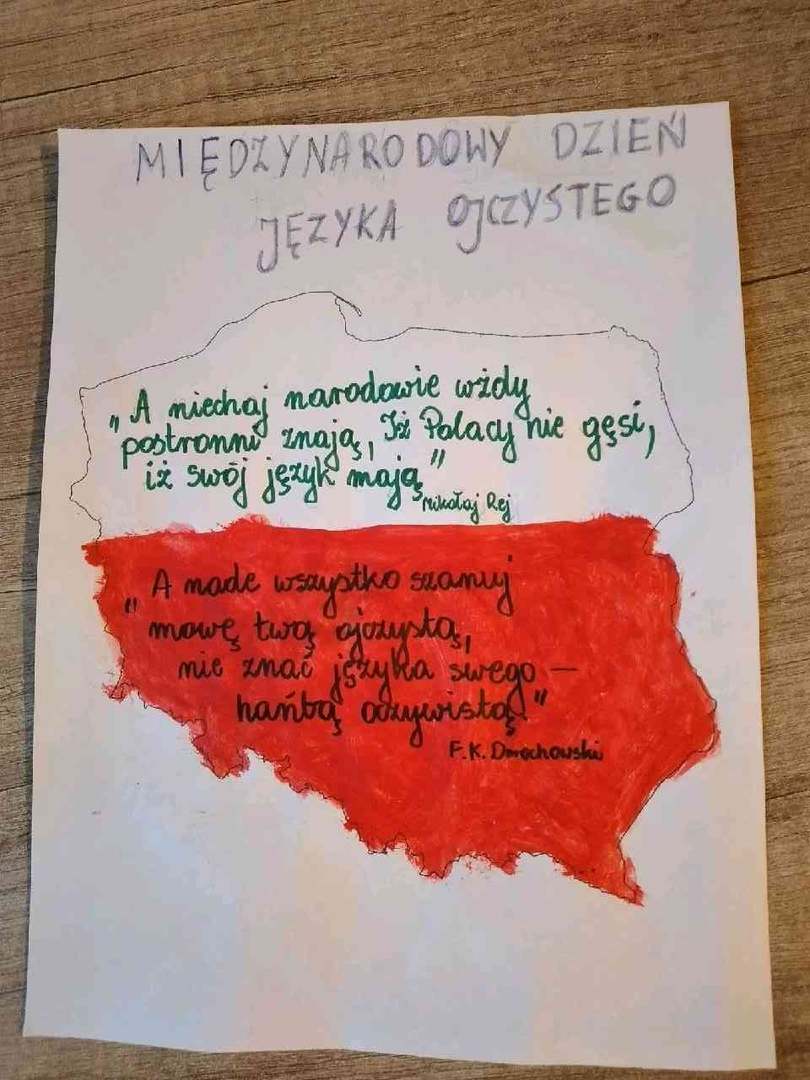 MIĘDZYNARODOWY DZIEŃ
JĘZYKA OJCZYSTEGO
„A niechaj narodowie wżdy
postronni znają, Iż Polacy nie gęsi,
iż swój język mają”
Mikołaj Rej
„A nade wszystko szanuj
mowę twą ojczystą,
nie znać języka swego –
hańbą oczywistą.”
F.K. Dmochowski